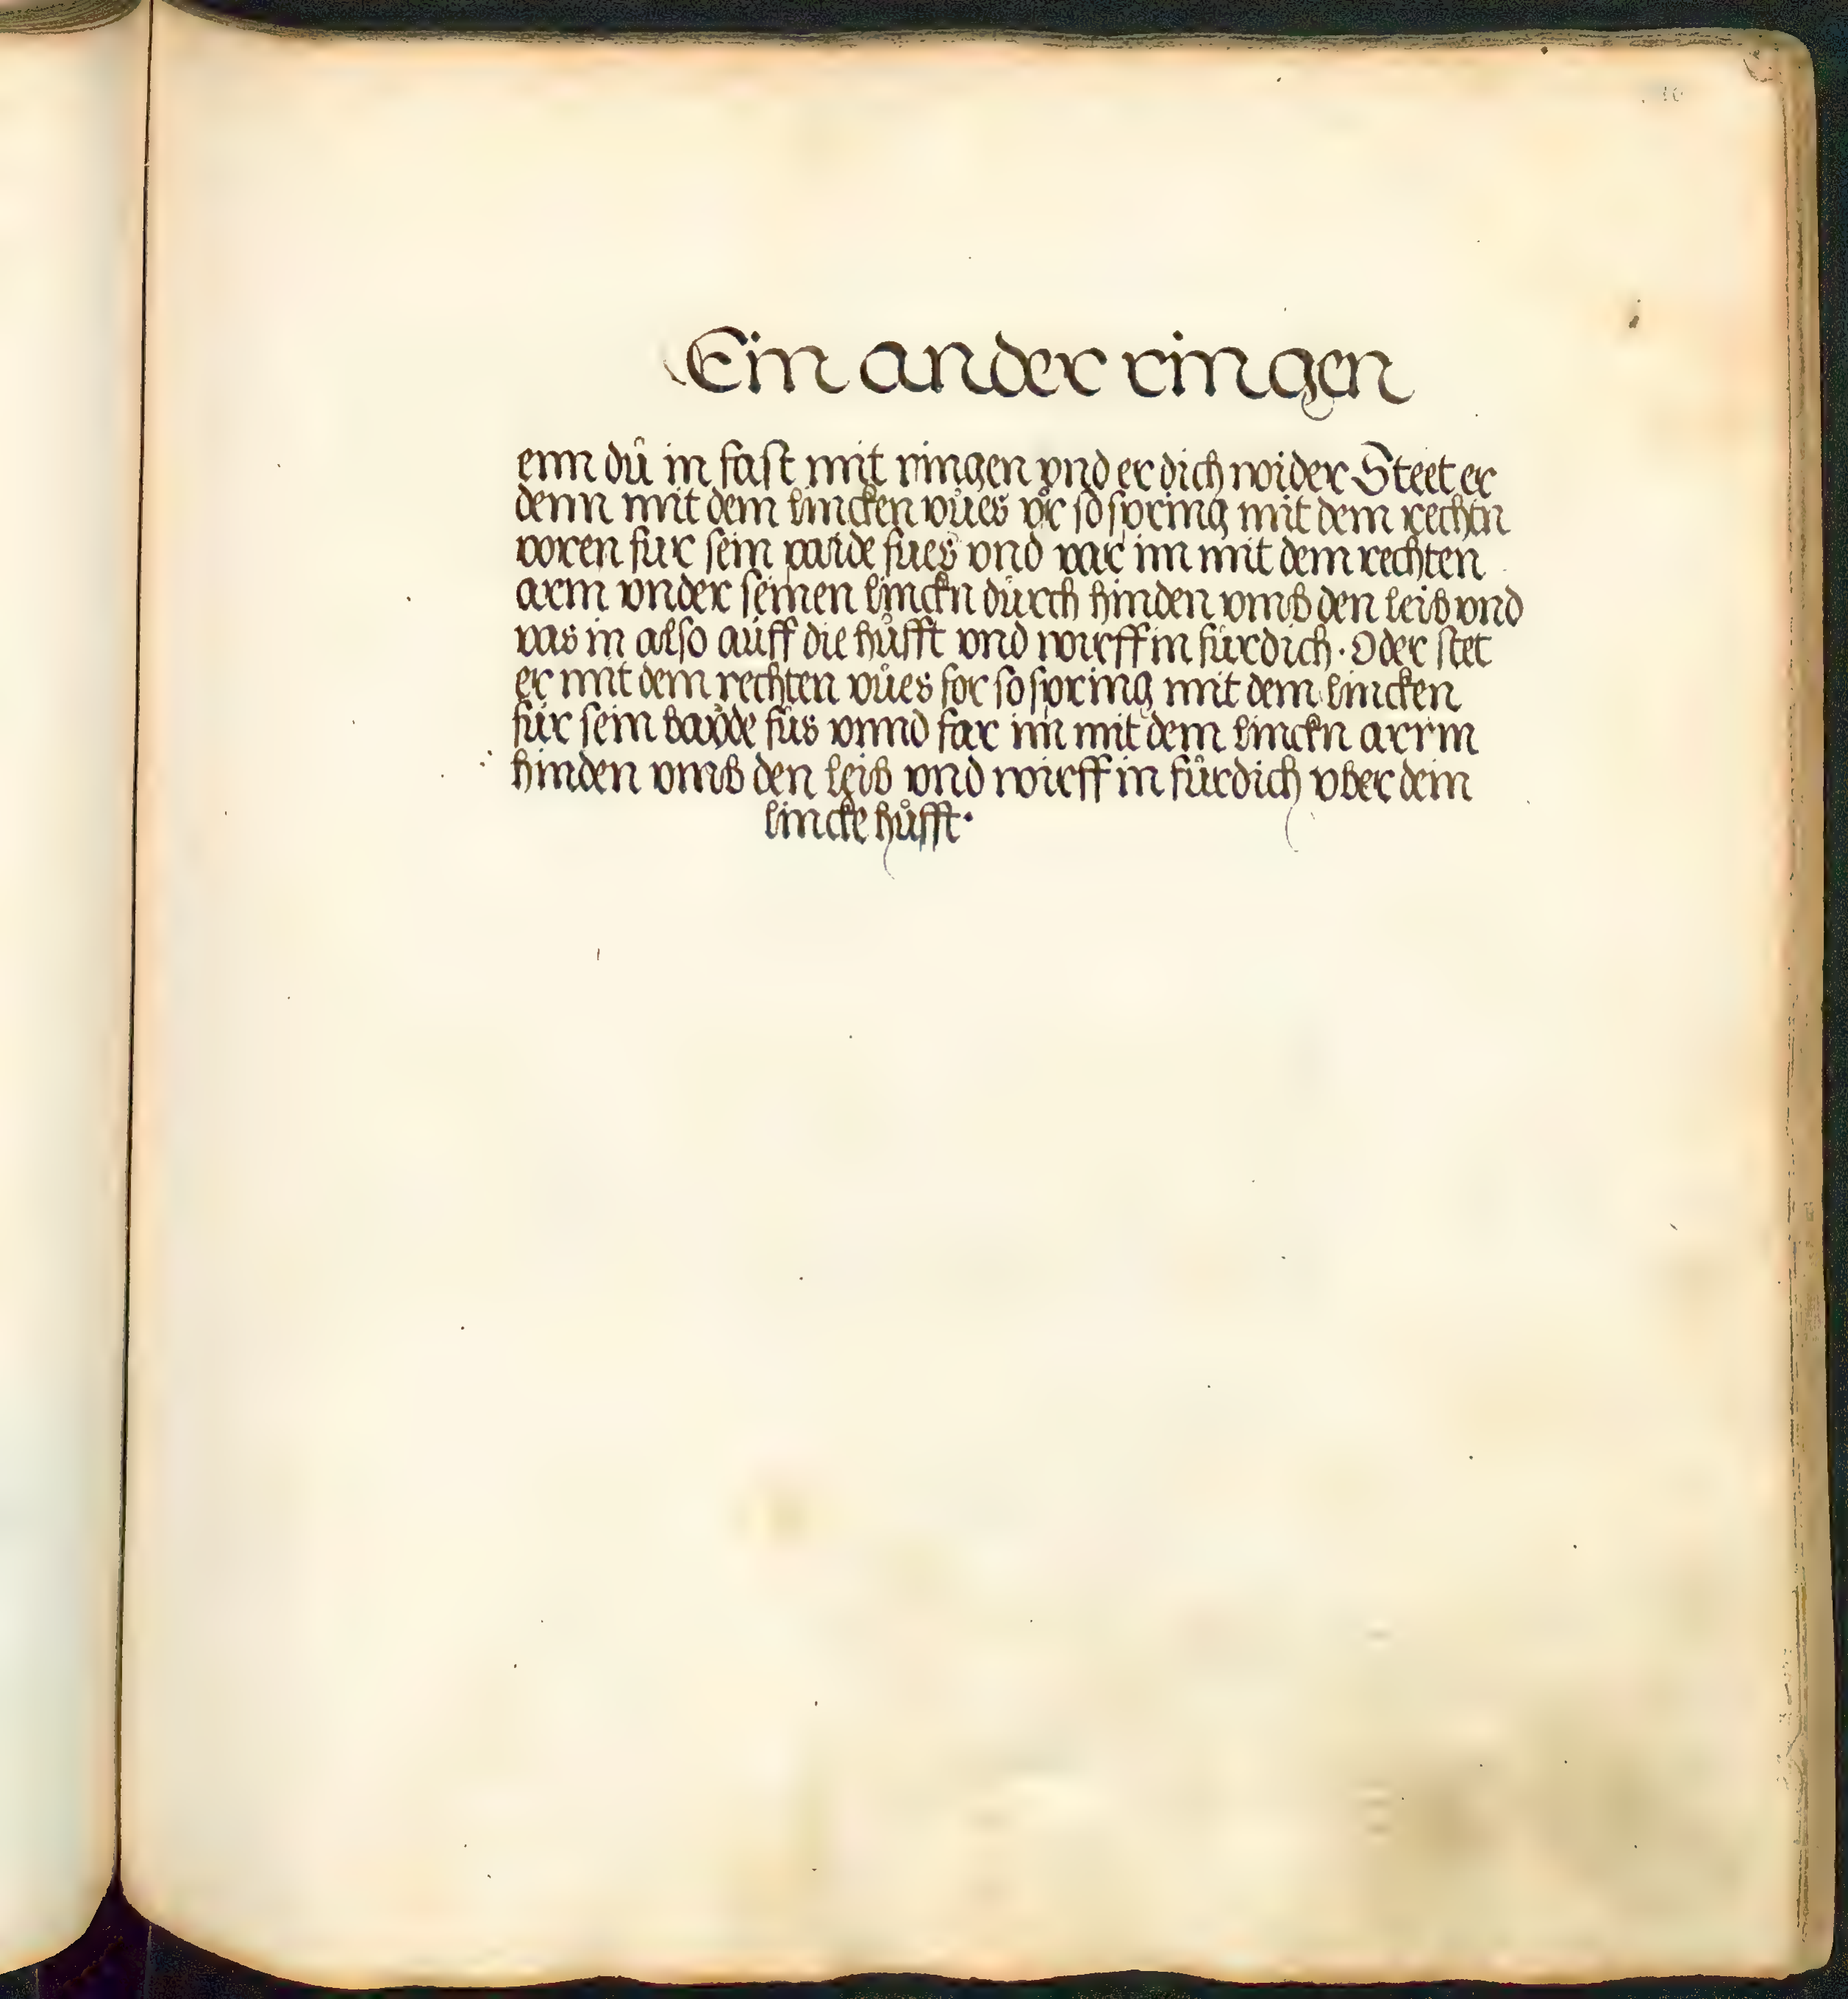 Ein ander ringen
enn dů in fast mit ringen vnd er dich wider Steet er
denn mit dem lincken vůes vor so spring mit dem rechtn
voren fur sein paide fues vnd var im mit dem rechten
arm vnder seinen linckn dürch hinden vmb den leib vnd
vas in also aüff die hüfft vnd wirff in fürdich · Oder stet
er mit dem rechten vůes for so spring mit dem lincken
für sein bayde füs vnnd far im mit dem linckn arrm
hinden vmb den leib vnd wirff in fürdich vber dein
lincke hůfft ·